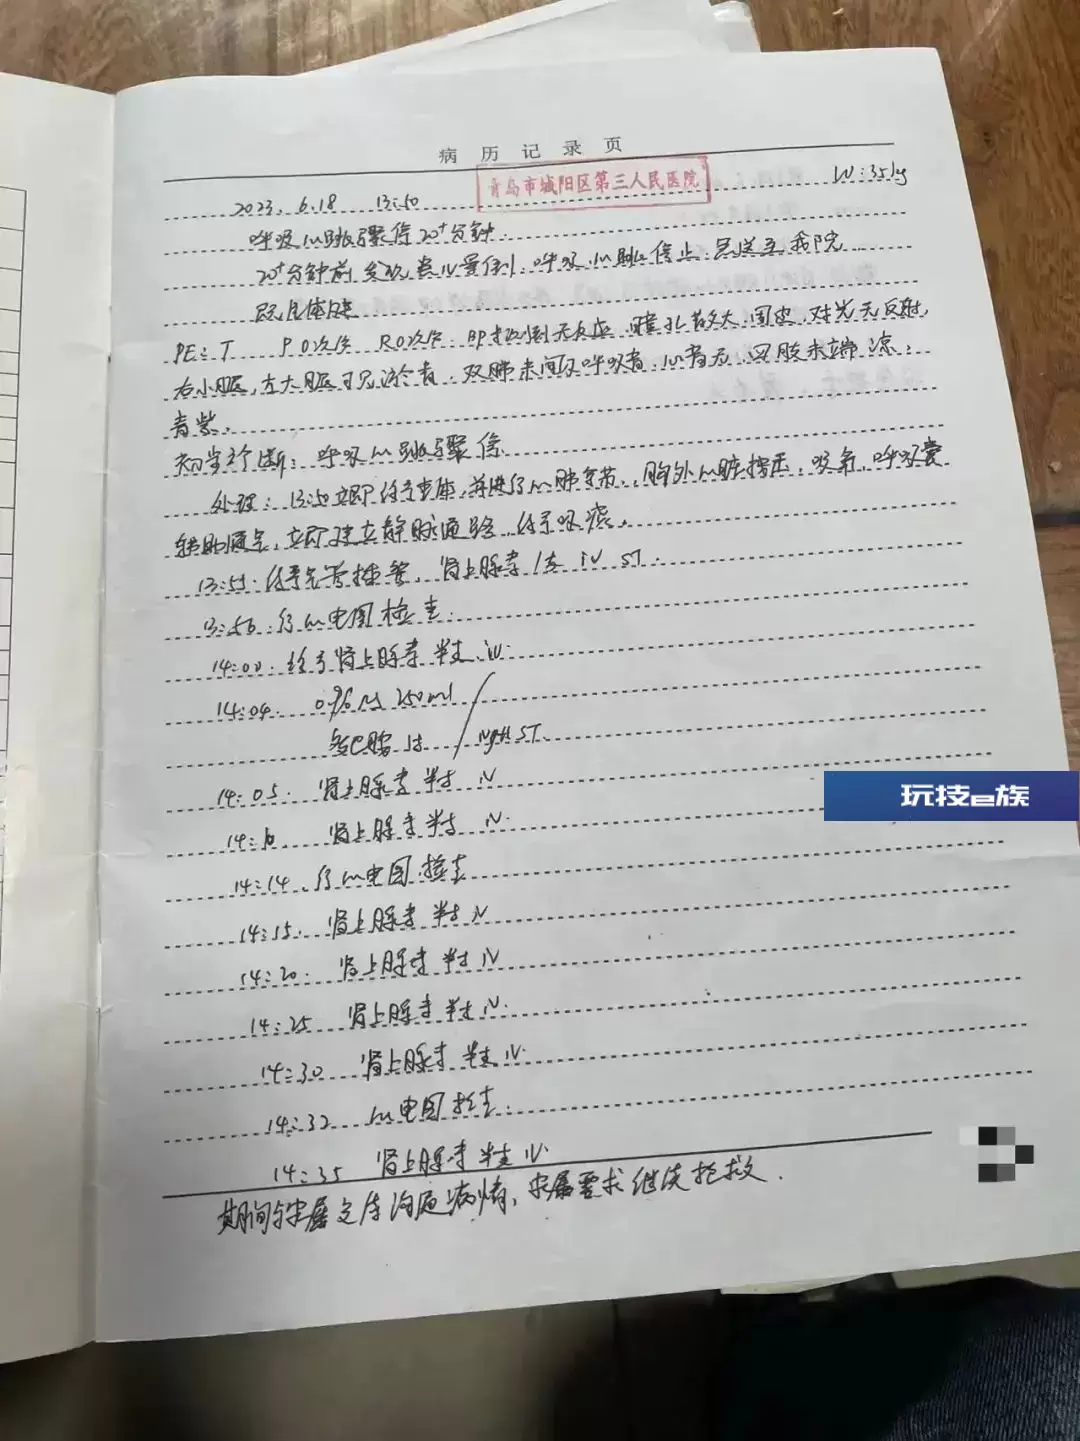 病历记录页
青岛市城阳区第三人民医院
W:35kg
2023.6.18 13:50
呼吸心跳骤停20+分钟.
20+分钟前发现患儿晕倒,呼吸、心跳停止,急送至我院.
既往体健
PE: T P 0次/分 R 0次/分. BP 测不到 无反应,瞳孔散大,固定,对光无反射,
右小腿,左大腿可见 双肺未闻及呼吸音,心音无,四肢末端凉,
青紫.
初步诊断:呼吸心跳骤停
处理:13:50立即 查体,并进行心肺复苏,胸外心脏按压,吸氧,呼吸囊
辅助通气,立即建立静脉通路,给予吸痰.
13:51.给予气管插管,肾上腺素 1支 iv ST.
13:56.行心电图检查.
14:00.给予肾上腺素 半支 iv.
14:04. 0.9% NS 250ml
多巴胺 1支 / ivgtt ST.
14:05. 肾上腺素 半支 iv
14:10. 肾上腺素 半支 iv.
14:14.行心电图检查
14:15. 肾上腺素 半支 iv
14:20. 肾上腺素 半支 iv
14:25 肾上腺素 半支 iv.
14:30 肾上腺素 半支 iv.
14:32 心电图检查.
14:35 肾上腺素 半支 iv.
期间与家属交待沟通病情,家属要求继续抢救.
玩技e族